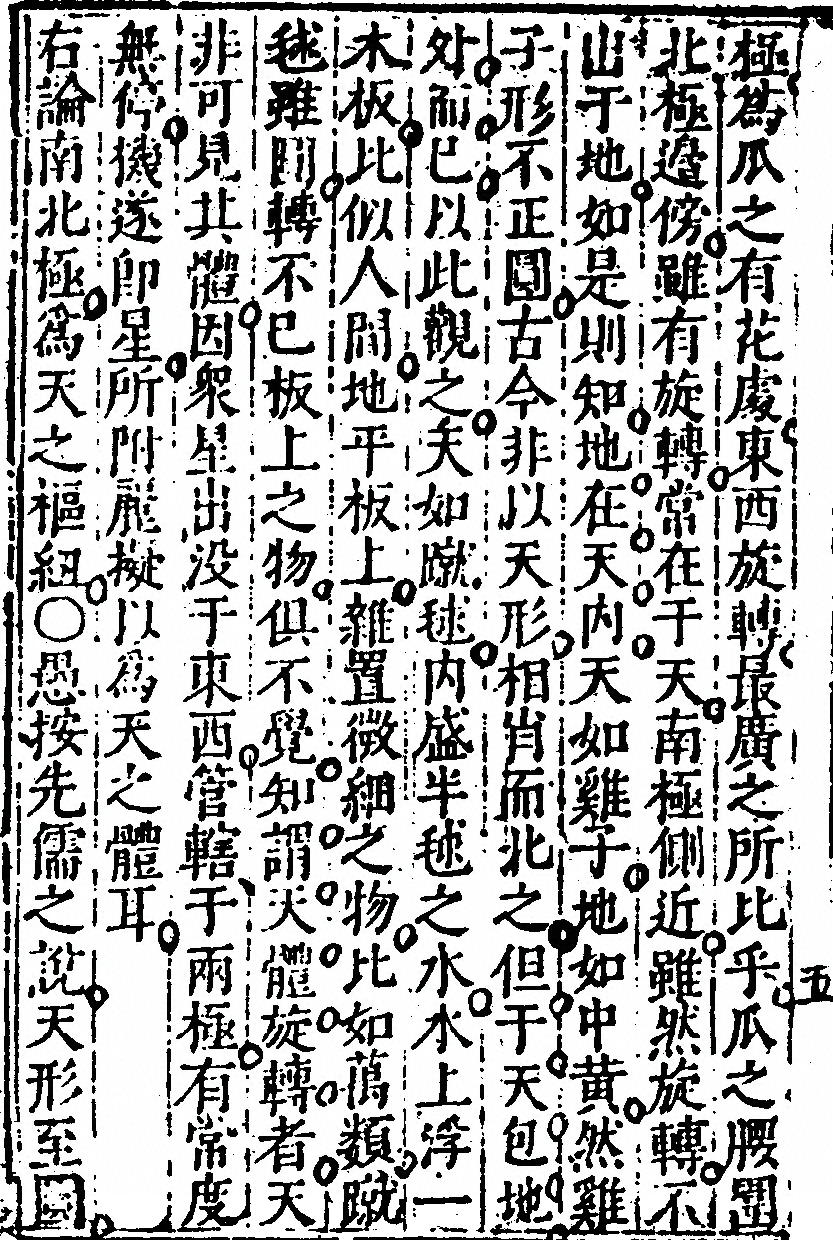 極爲瓜之有花處東西旋轉最廣之所比乎瓜之腰圍
北極邊傍雖有旋轉常在于天南極側近雖然旋轉不
出于地如是則知地在天内天如雞子地如中黄然雞
子形不正圓古今非以天形相肖而比之但于天包地
外而已以此觀之天如蹴毬内盛半毬之水水上浮一
木板比似人間地平板上雜置微細之物比如萬類蹴
毬雖圓轉不已板上之物俱不覺知謂天體旋轉者天
非可見其體因衆星出没于東西管轄于兩極有常度
無停機遂卽星所附麗擬以爲天之體耳
右論南北極爲天之樞紐〇愚按先儒之説天形至圓
五